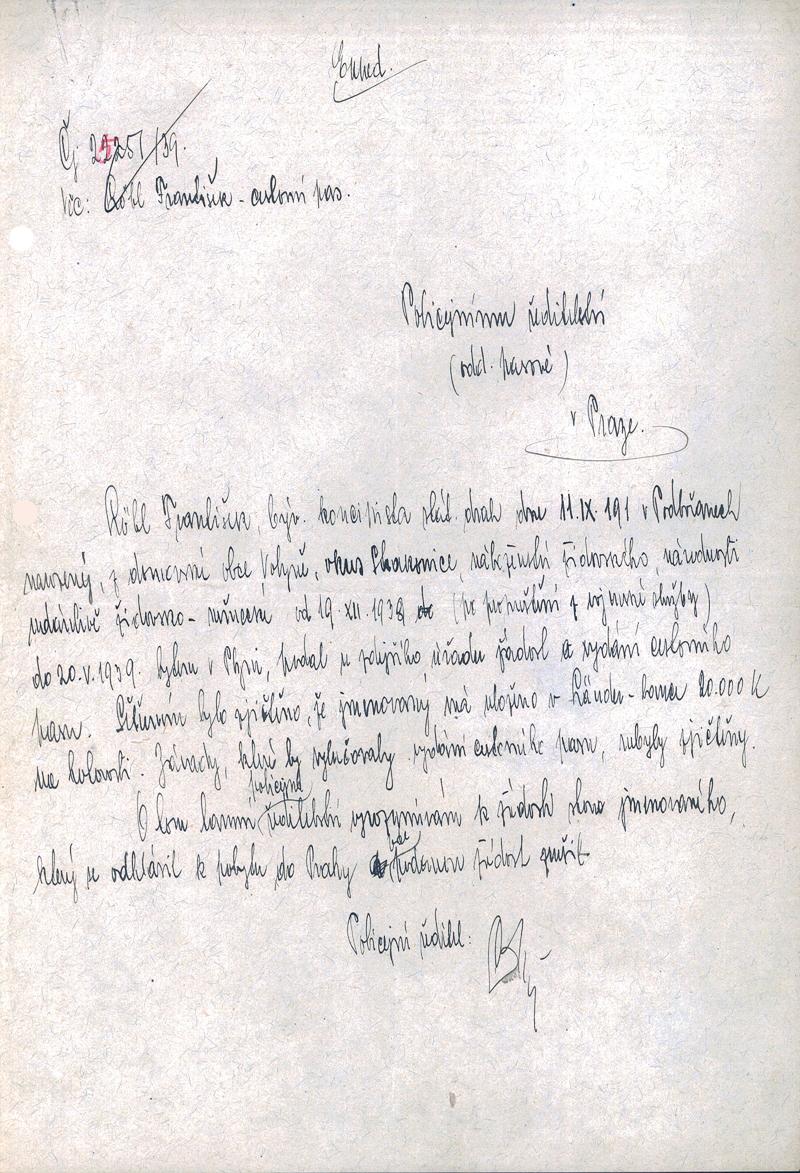 Čj 25251/39.
Věc: Röbl František - cestovní pas.
Policejnímu ředitelství
(odd. pasové)
v Praze.
Röbl František, býv. koncipista stát. drah dne 11.IX.191 v Podbořanech
narozený, z domovské obce Volyně, okres Strakonice, náboženství židovského, národnosti
údajně židovsko-německé od 19.XII.1938 (po propuštění z vojenské služby)
do 20.V.1939 bytem v Plzni, podal u zdejšího úřadu žádost o vydání cestovního
pasu. Šetřením bylo zjištěno, že jmenovaný má uloženo v Länder-bance 20.000 K
na hotovosti. Závady, které by vylučovaly vydání cestovního pasu, nebyly zjištěny.
O tom tamní policejní ředitelství vyrozumívám k žádosti shora jmenovaného,
který se odhlásil k pobytu do Prahy podanou žádost zrušit
Policejní ředitel: